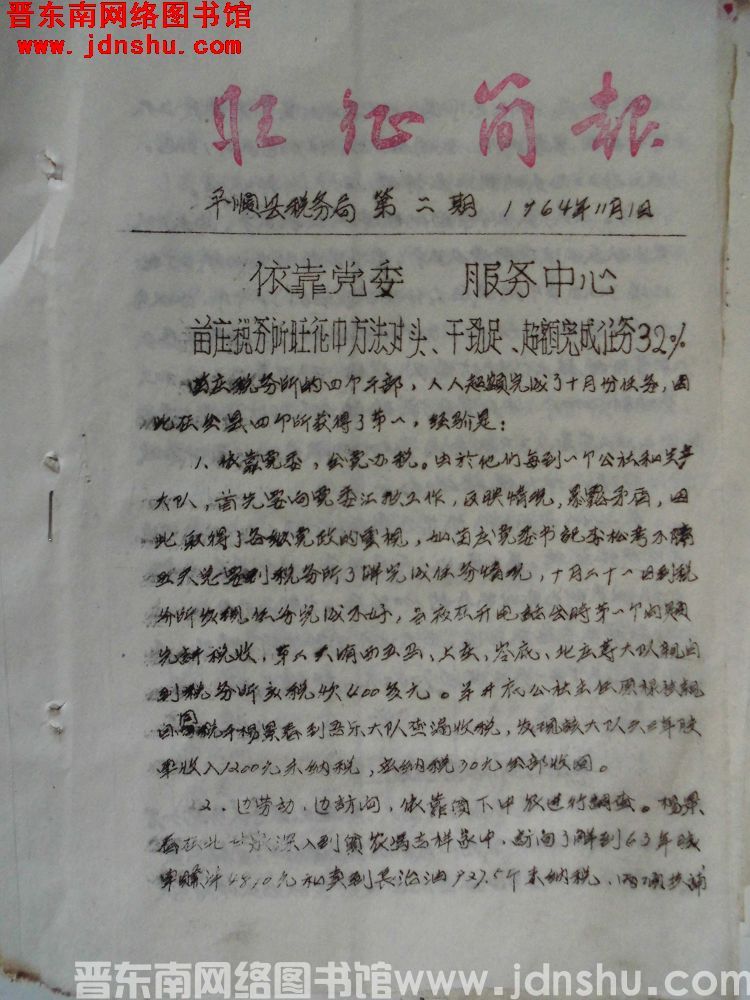 晋东南网络图书馆
www.jdnshu.com
旺征简报
平顺县税务局 第二期 1964年11月1日
依靠党委 服务中心
苗庄税务所旺征中方法对头、干劲足、超额完成任务32%
苗庄税务所的四个干部，人人超额完成了十月份任务，因
此在全县四个所获得了第一，经验是：
1、依靠党委，全党办税。由於他们每到一个公社和生产
大队，首先要向党委汇报工作，反映情况，暴露矛盾，因
此取得了各级党政的重视，如苗庄党委书记李松考不隔
五天总要到税务所了解完成任务情况，十月二十一日到税
务所发现任务完成不好，当夜在开电话会时第一个问题
先讲税收，第二天有西五马、上庄、岩底、北庄等大队亲自
到税务所交税款400多元。羊井底公社主任
到 大队查漏收税，发现该大队六三年
收入1200元未纳税，应纳税30元全部收回。
2、边劳动，边访问，依靠贫下中农进行调查。杨景
春在 深入到贫农冯吉祥家中，访问了解到63年
4810元和卖到长治油927.5斤未纳税，两项共补
晋东南网络图书馆www.jdnshu.com